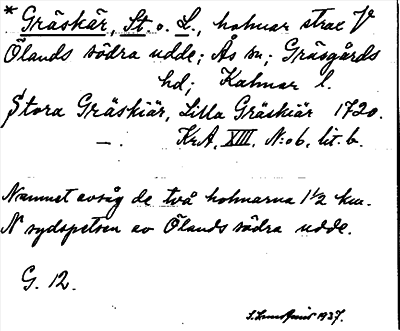 * Gräskär, St. o. L., holmar strax V
Ölands södra udde; Ås sn; Gräsgårds
hd; Kalmar l.
Stora Gräskiär, Lilla Gräskiär 1720.
—. KrA, XIII, N:o 6, lit. b.
Namnet avsåg de två holmarna 1 1/2 km.
N sydspetsen av Ölands södra udde.
G. 12.
1937.